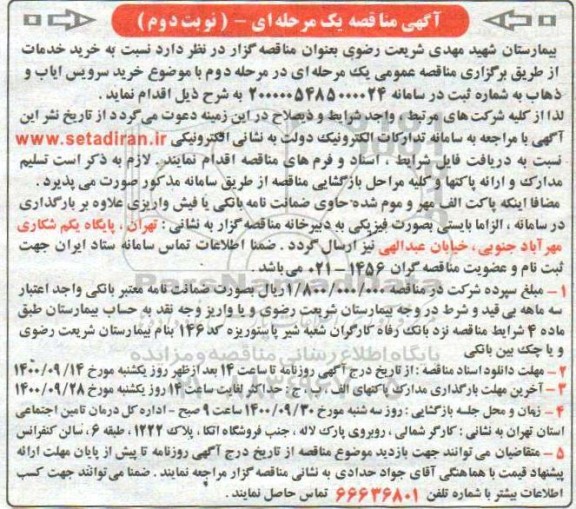 آگهی مناقصه یک مرحله‌ای - (نوبت دوم)
بیمارستان شهید مهدی شریعت رضوی بعنوان مناقصه گزار در نظر دارد نسبت به خرید خدمات
از طریق برگزاری مناقصه عمومی یک مرحله ای در مرحله دوم با موضوع خرید سرویس ایاب و
ذهاب به شماره ثبت در سامانه ۲۰۰۰۰۰۵۴۸۵۰۰۰۰۲۴ به شرح ذیل اقدام نماید .
لذا از کلیه شرکت های مرتبط ، واجد شرایط و ذیصلاح در این زمینه دعوت می‌گردد از تاریخ نشر این
آگهی با مراجعه به سامانه تدارکات الکترونیک دولت به نشانی الکترونیکی www.setadiran.ir
نسبت به دریافت فایل شرایط ، اسناد و فرم های مناقصه اقدام نمایند. لازم به ذکر است تسلیم
مدارک و ارائه پاکتها و کلیه مراحل بازگشایی مناقصه از طریق سامانه مذکور صورت می پذیرد .
مضافا اینکه پاکت الف مهر و موم شده حاوی ضمانت نامه بانکی یا فیش واریزی علاوه بر بارگذاری
در سامانه ، الزاما بایستی بصورت فیزیکی به دبیرخانه مناقصه گزار به نشانی : تهران ، پایگاه یکم شکاری
مهرآباد جنوبی، خیابان عبدالهی نیز ارسال گردد . ضمنا اطلاعات تماس سامانه ستاد ایران جهت
ثبت نام و عضویت مناقصه گران ۱۴۵۶ - ۰۲۱ می باشد .
۱ - مبلغ سپرده شرکت در مناقصه ۱/۸۰۰/۰۰۰/۰۰۰ ریال بصورت ضمانت نامه معتبر بانکی واجد اعتبار
سه ماهه بی قید و شرط در وجه بیمارستان شریعت رضوی و یا واریز وجه نقد به حساب بیمارستان طبق
ماده ۴ شرایط مناقصه نزد بانک رفاه کارگران شعبه شیر پاستوریزه کد ۱۴۶ بنام بیمارستان شریعت رضوی
و یا چک بین بانکی
۲ - مهلت دانلود اسناد مناقصه : از تاریخ درج آگهی روزنامه تا ساعت ۱۴ بعد ازظهر روز یکشنبه مورخ ۱۴۰۰/۰۹/۱۴
۳ - آخرین مهلت بارگذاری مدارک پاکتهای الف ، ب ، ج : حداکثر لغایت ساعت ۱۴ روز یکشنبه مورخ ۱۴۰۰/۰۹/۲۸
۴ - زمان و محل جلسه بازگشایی : روز سه شنبه مورخ ۱۴۰۰/۰۹/۳۰ ساعت ۹ صبح - اداره کل درمان تامین اجتماعی
استان تهران به نشانی : کارگر شمالی ، روبروی پارک لاله ، جنب فروشگاه اتکا ، پلاک ۱۲۲۲ ، طبقه ۶ ، سالن کنفرانس
۵ - متقاضیان می توانند جهت بازدید موضوع مناقصه از تاریخ درج آگهی روزنامه تا پیش از پایان مهلت ارائه
پیشنهاد قیمت با هماهنگی آقای جواد حدادی به نشانی مناقصه گزار مراجعه نمایند . ضمنا می توانند جهت کسب
اطلاعات بیشتر با شماره تلفن ۶۶۶۳۶۸۰۱ تماس حاصل نمایند .